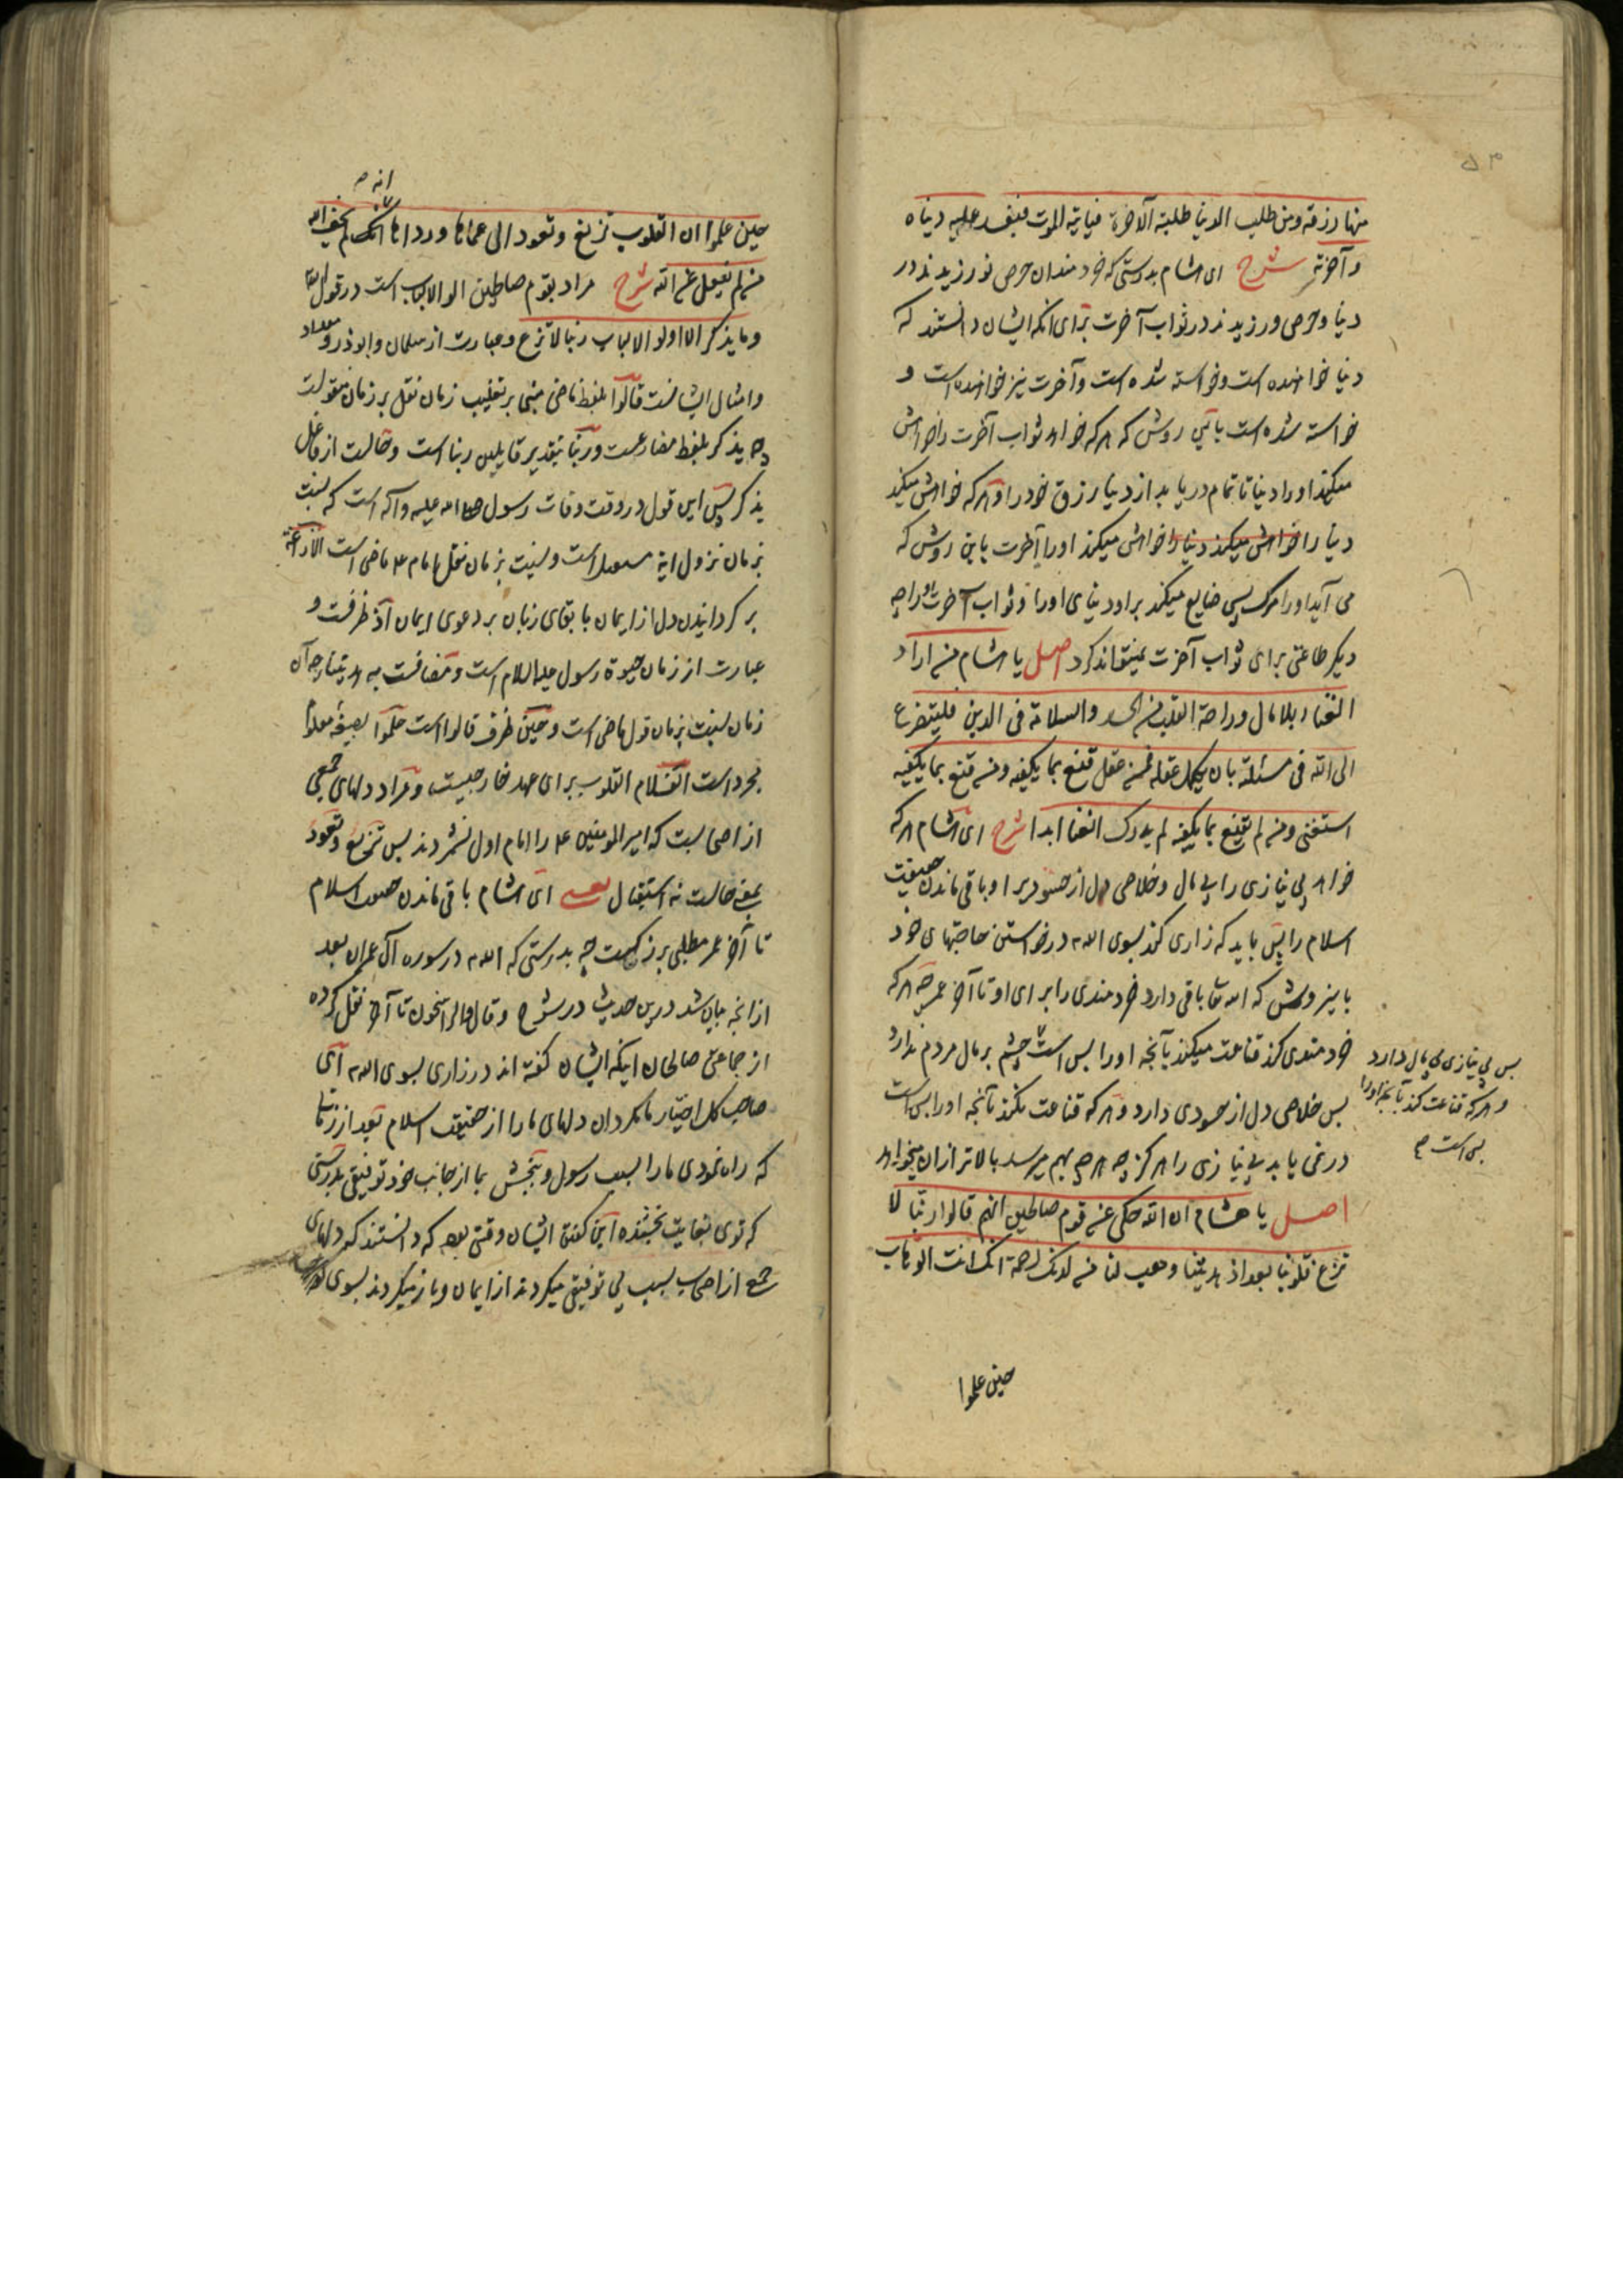 منها رزقه ومن طلب الدنیا طلبته الآخرة فیاتیه الموت فیفسد علیه دنیاه
وآخرته شرح ای هشام بدرستی که خردمندان حرص نورزیدند در
دنیا وحرص ورزیدند در ثواب آخرت برای انکه ایشان دانستند که
دنیا خواهنده است وخواسته شده است وآخرت نیز خواهنده است و
خواسته شده است باین روش که هر که خواهد ثواب آخرت را خواهش
میکند او را دنیا تا تمام دریابد از دنیا رزق خود را وهر که خواهش میکند
دنیا را خواهش میکند دنیا را خواهش میکند او را آخرت باین روش که
می آید او را مرک پس ضایع میکند بر او دنیای او را وثواب آخرت او را چه
دیکر طاعتی برای ثواب آخرت نمیتواند کرد اصل یا هشام من اراد
الغناء بلا مال وراحة القلب من الحسد والسلامة فی الدین فلیتضرع
الی الله فی مسئلته بان یکمل عقله فمن عقل قنع بما یکفیه ومن قنع بما یکفیه
استغنی ومن لم یقنع بما یکفیه لم یدرک الغنا ابدا شرح ای هشام هر که
خواهد بی نیازی را بی مال وخلاصی دل از حسد بر او باقی ماندن حقیقت
اسلام را پس باید که زاری کند بسوی الله در خواستن حاجتهای خود
باینروش که الله تعا باقی دارد خردمندی را برای او تا آخر عمر چه هر که
خردمندی کند قناعت میکند بآنچه او را بس است چشم بر مال مردم ندارد
پس خلاصی دل از حسودی دارد وهر که قناعت نکند بآنچه او را بس است
در نمی یابد بی نیازی را هرکز چه هر چه بهم میرسد بالاتر از ان میخواهد
اصل یا هشام ان الله حکی عن قوم صالحین انهم قالوا ربنا لا
تزغ قلوبنا بعد اذ هدیتنا وهب لنا من لدنک رحمة انک انت الوهاب
حین علموا
پس بی نیازی بی مال دارد
وهر که قناعت کند بآنچه او را
بس است
انه
حین علموا ان القلوب تزیغ وتعود الی عماها ورداها انه لم یخف الله
من لم یعقل عن الله شرح مراد بقوم صالحین اولو الالباب است در قول الله
وما یذکر الا اولو الالباب ربنا لا تزغ وعبارت از سلمان وابوذر ومقداد
وامثال ایشانست قالوا بلفظ ماضی مبنی بر تغلیب زمان نقل بر زمان مقولست
چه یذکر بلفظ مضارعست وربنا بتقدیر قایلین ربنا است وحالست از فاعل
یذکر پس این قول در وقت وفات رسول صلی الله علیه وآله است که نسبت
بزمان نزول ایه مستقبل است ونسبت بزمان نقل امام ع ماضی است الازاغة
بر کردانیدن دل از ایمان با بقای زبان بر دعوی ایمان اذ ظرفست و
عبارت از زمان حیوة رسول علیه السلام است ومضافست به هدیتنا چه آن
زمان نسبت بزمان قول ماضی است وحین ظرف قالوا است علموا بصیغه معلوم
مجرد است الف لام القلوب برای عهد خارجیست ومراد دلهای جمعی
از اصحابست که امیر المومنین ع را امام اول نشمردند پس تزیغ وتعود
بمعنی حالست نه استقبال یعنی ای هشام باقی ماندن حقیقت اسلام
تا آخر عمر مطلبی بزرکست چه بدرستی که الله در سوره آل عمران بعد
از انچه بیان شد درین حدیث در شرح وقال والراسخون تا آخر نقل کرده
از جماعتی صالحان اینکه ایشان کفته اند در زاری بسوی الله ای
صاحب کل اختیار ما مکردان دلهای ما را از حقیقت اسلام بعد از زمان
که راه نمودی ما را بسبب رسول وببخش بما از جانب خود توفیق بدرستی
که توی بغایت بخشنده این کفتن ایشان وقتی بود که دانستند که دلهای
جمع از اصحاب بسبب بی توفیقی میکردند از ایمان وباز میکردند بسوی